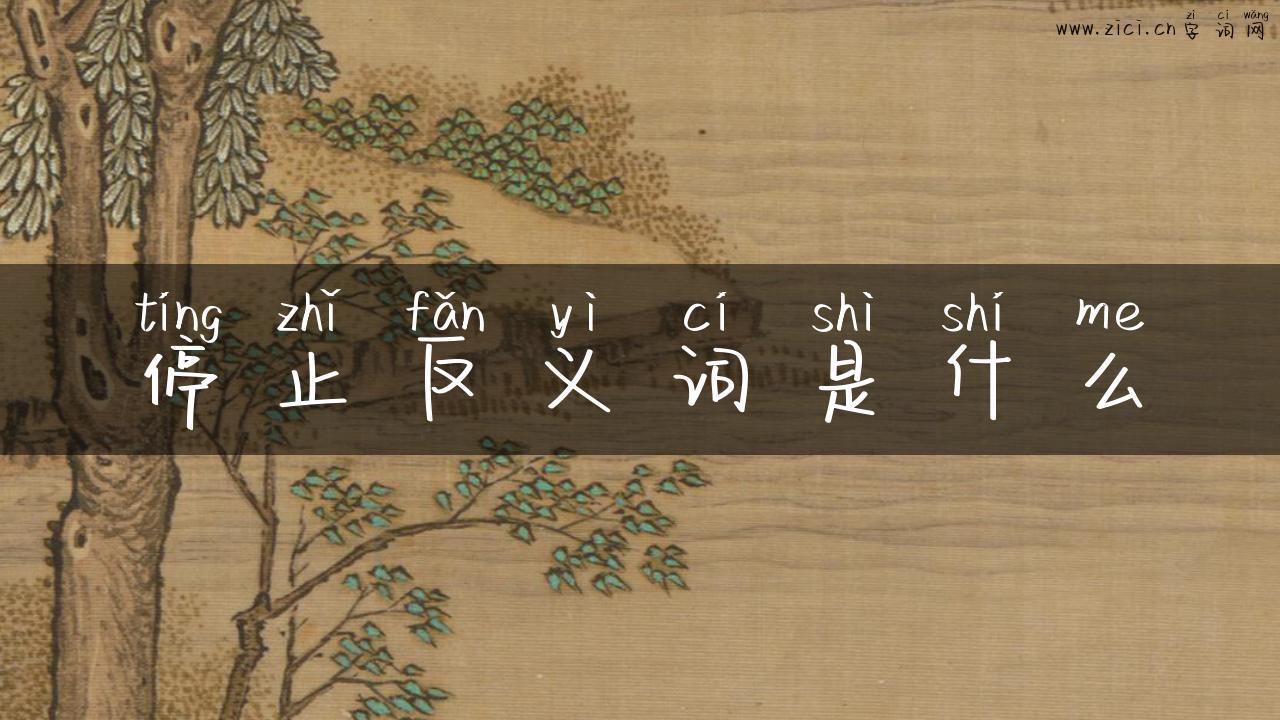 zì cí wǎng
www.zici.cn 字词网
tíng zhǐ fǎn yì cí shì shí me
停止反义词是什么